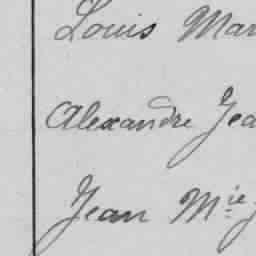 Louis Mar
Alexandre Jea
Jean M.ie J